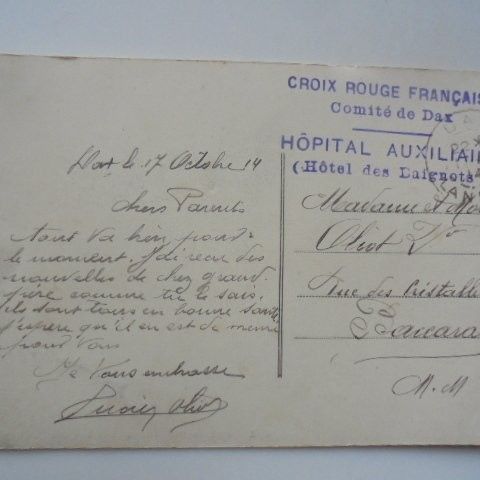 CROIX ROUGE FRANÇAIS
Comité de Dax
HÔPITAL AUXILIAI
(Hôtel des Baignots
Dax le 17 Octobre 14
chers Parents
tout va bien pour
le moment. J'ai reçu des
nouvelles de chez grand
père comme tu le sais.
ils sont tous en bonne santé
j'espère qu'il en est de même
pour vous
Je vous embrasse
Madame et Mo
Rue des Cristalle
Baccara
M. M